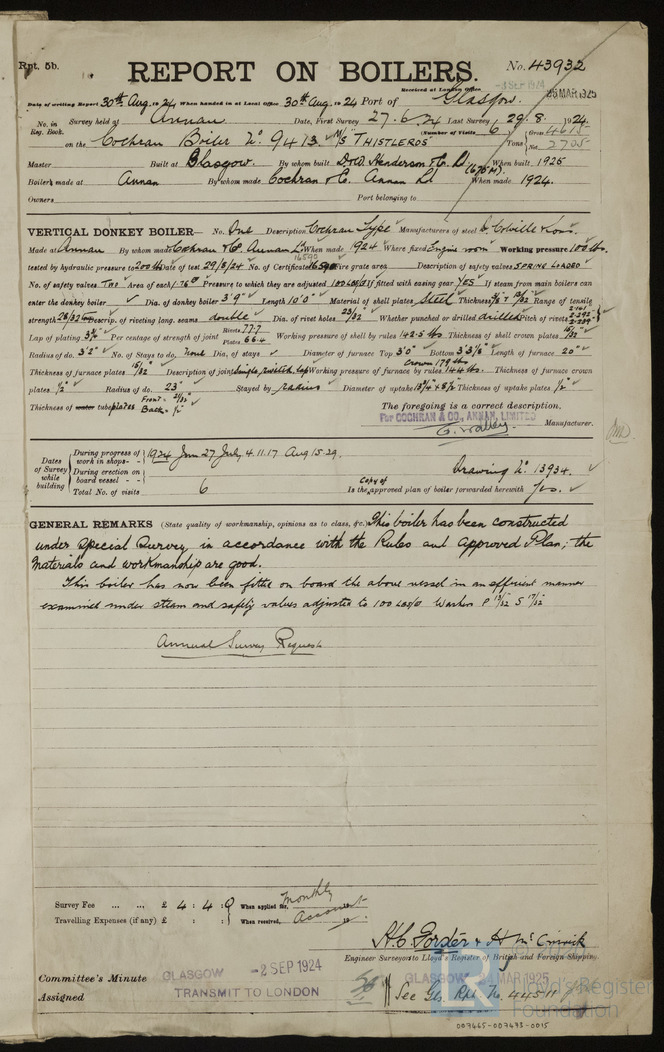 Rpt. 5b.
REPORT ON BOILERS.
No. 43932
Received at London Office
-3 SEP 1924
25 MAR 1925
Date of writing Report 30th Aug. 1924 When handed in at Local Office 30th Aug. 1924 Port of Glasgow.
No. in Reg. Book.
Survey held at Annan Date, First Survey 27.6.24 Last Survey 29.8.1924
(Number of Visits 6) Gross 4615
on the Cochran Boiler No. 9413. M/S THISTLEROS Tons Net 2705
Master Built at Glasgow. By whom built D. & W. Henderson & Co. Ld (675M) When built 1925
Boilers made at Annan By whom made Cochran & Co. Annan Ld When made 1924.
Owners Port belonging to
VERTICAL DONKEY BOILER— No. One Description Cochran Type Manufacturers of steel D. Colville & Sons.
Made at Annan By whom made Cochran & Co. Annan Ld When made 1924 Where fixed Engine room Working pressure 100 lbs.
16590
tested by hydraulic pressure to 200 lbs Date of test 29/8/24 No. of Certificate 16590 Fire grate area Description of safety valves SPRING LOADED
No. of safety valves Two Area of each 1.76" Pressure to which they are adjusted 100 LBS/" If fitted with easing gear YES If steam from main boilers can
enter the donkey boiler Dia. of donkey boiler 3' 9" Length 10' 0" Material of shell plates Steel Thickness Range of tensile
strength 28/32 Descrip. of riveting long. seams double Dia. of rivet holes 23/32 Whether punched or drilled drilled Pitch of rivets
Lap of plating Per centage of strength of joint Rivets 77.7 Plates 66.4 Working pressure of shell by rules 142.5 lbs Thickness of shell crown plates 15/32
Radius of do. 3' 2" No. of Stays to do. None Dia. of stays Diameter of furnace Top 3' 0" Bottom Length of furnace 20"
Crown 179 lbs
Thickness of furnace plates 15/32 Description of joint Single riveted lap Working pressure of furnace by rules 144 lbs. Thickness of furnace crown
plates ½" Radius of do. 23" Stayed by radius Diameter of uptake Thickness of uptake plates ½"
Thickness of water tube plates Front. 21/32" Back.
The foregoing is a correct description,
For COCHRAN & CO., ANNAN, LIMITED
Manufacturer.
Dates of Survey while building
During progress of work in shops - - 1924 Jun 27 July 4.11.17 Aug 15.29.
During erection on board vessel - - -
Total No. of visits 6
Drawing No. 13934.
Is the Copy of approved plan of boiler forwarded herewith Yes.
GENERAL REMARKS (State quality of workmanship, opinions as to class, &c.) This boiler has been constructed
under Special Survey in accordance with the Rules and Approved Plan; the
materials and workmanship are good.
This boiler has now been fitted on board the above vessel in an efficient manner
examined under steam and safety valves adjusted to 100 LBS/" Washers P 13/32 S 17/32
Annual Survey Request
Survey Fee ... ... £ 4 : 4 : 0 When applied for, Monthly
Travelling Expenses (if any) £ : : When received, Account 19
H.C. Forder & H McCormick
Engineer Surveyors to Lloyd's Register of British and Foreign Shipping.
Committee's Minute GLASGOW -2 SEP 1924
GLASGOW MAR 1925
Assigned TRANSMIT TO LONDON
See Gls. Rpt. No. 44511
Lloyd's Register
Foundation
007465-007473-0015